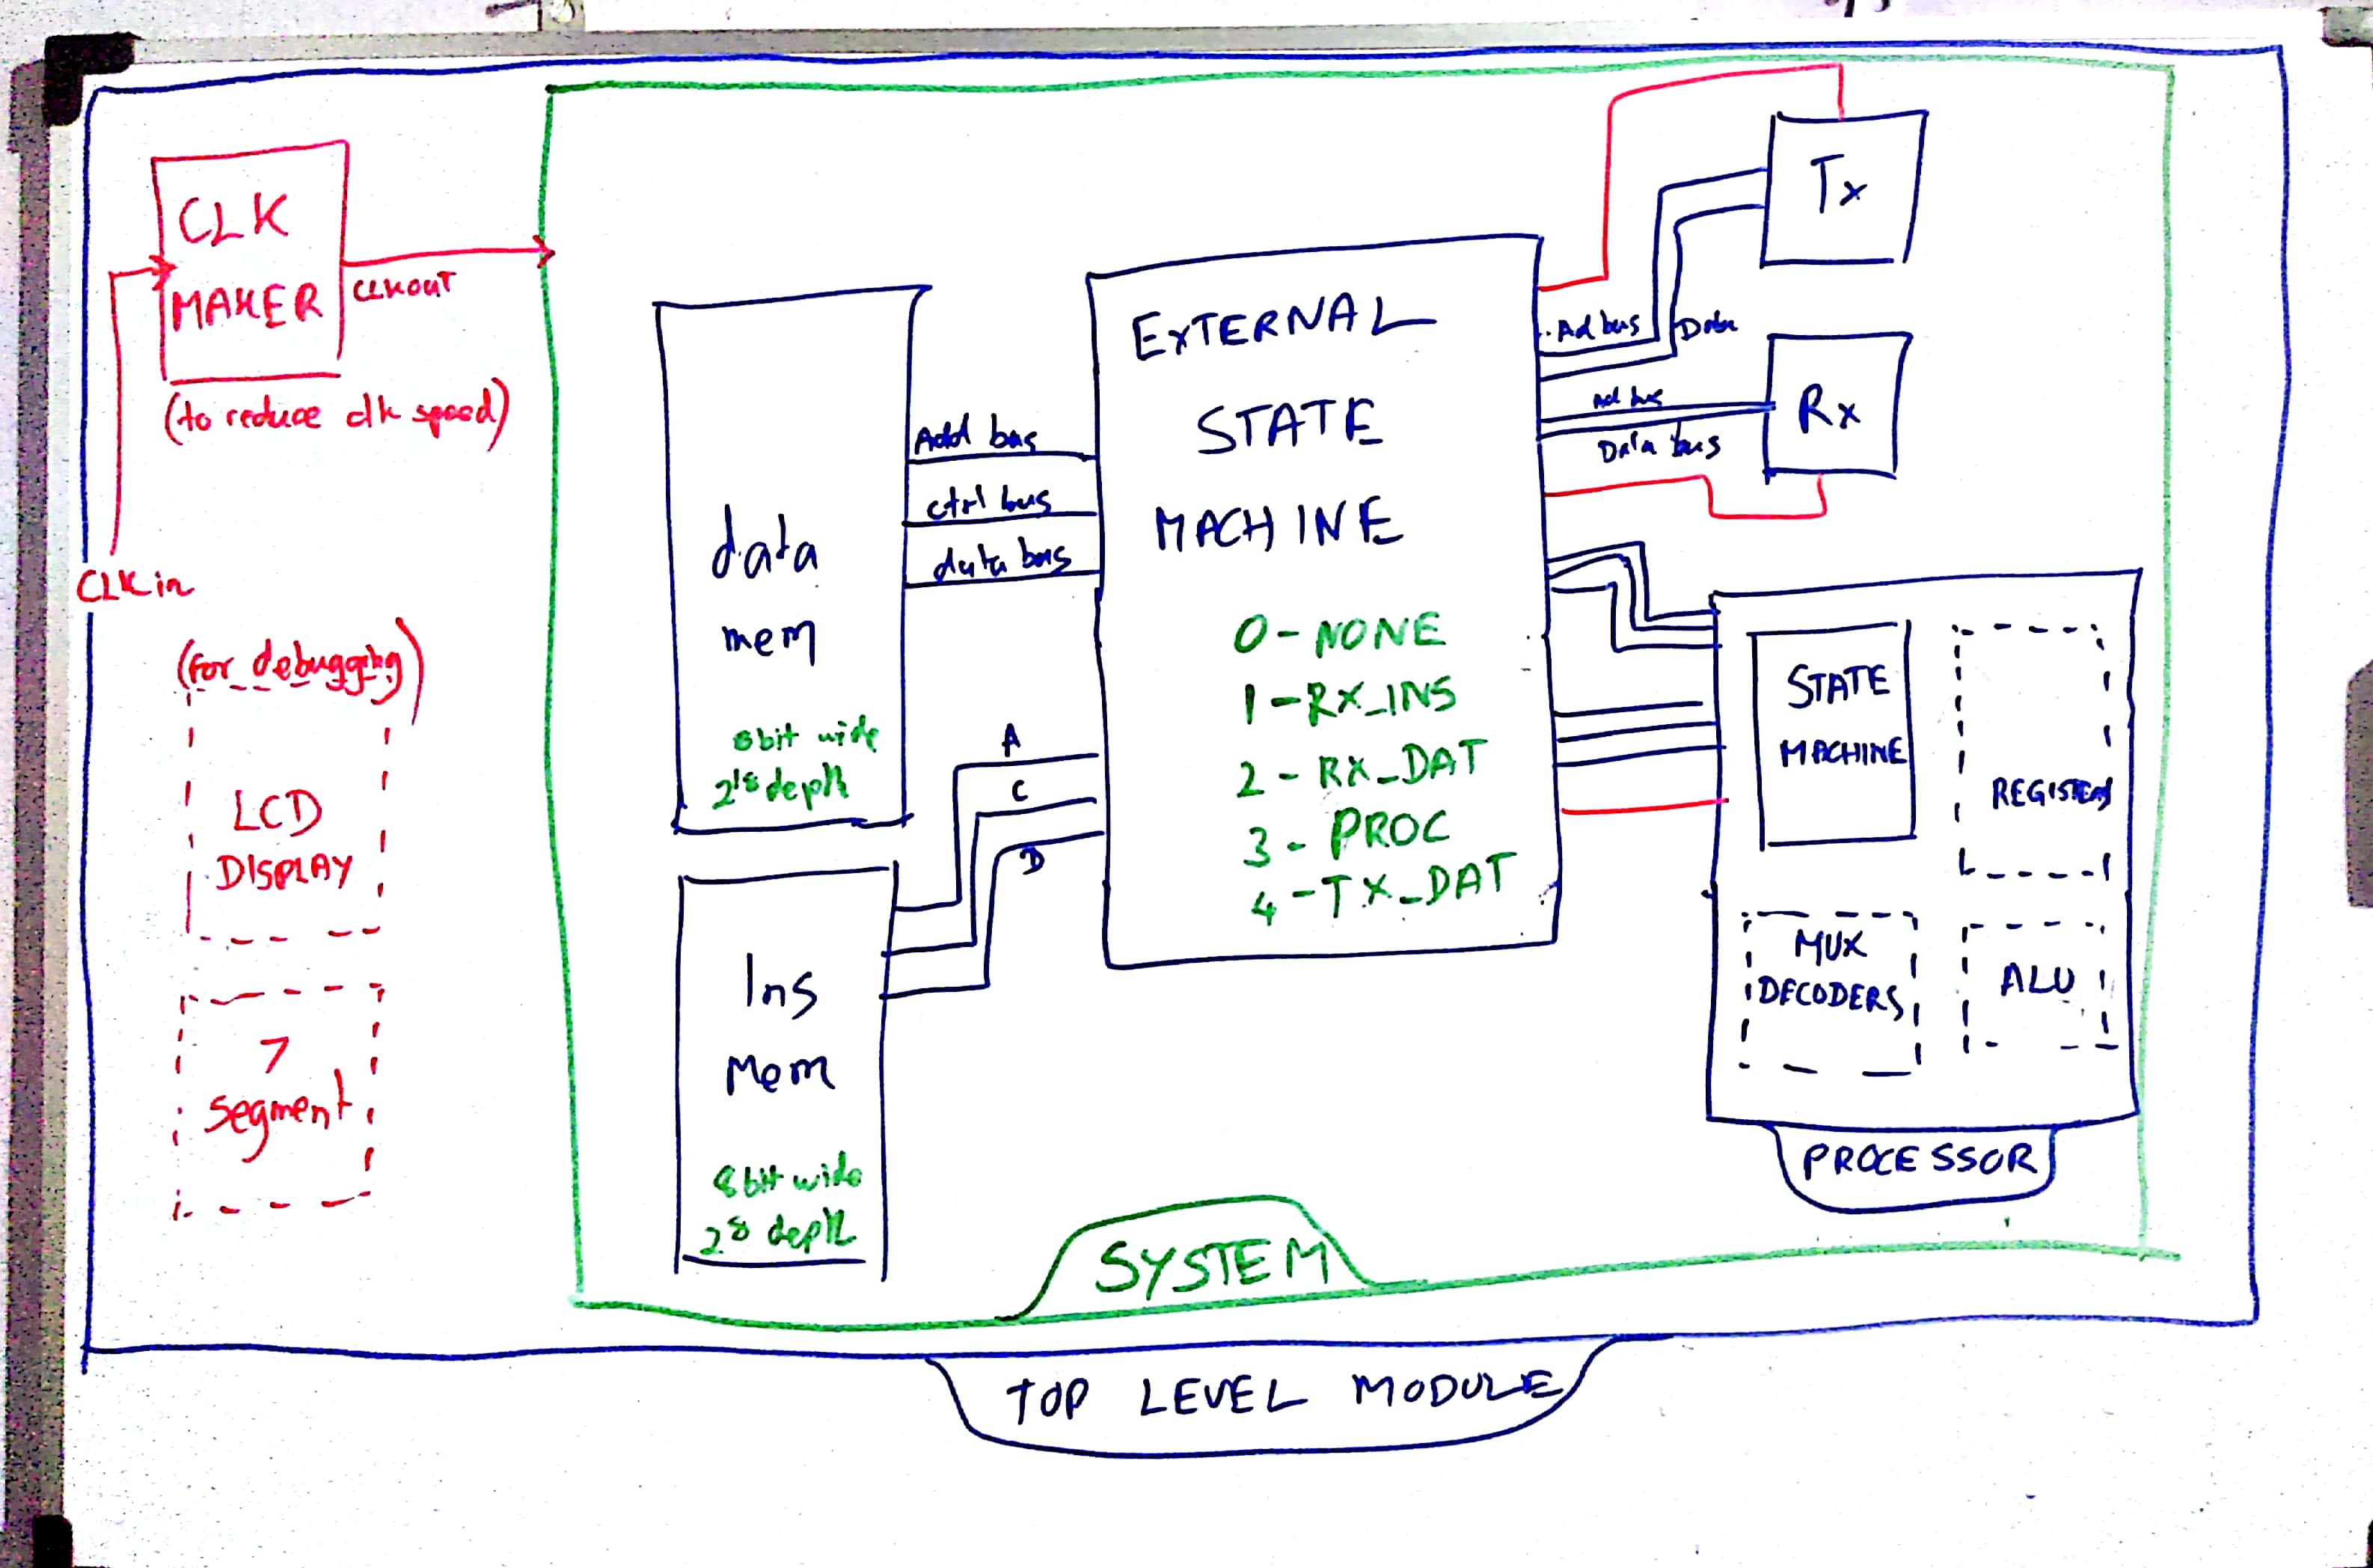 CLK
MAKER
CLKOUT
(to reduce clk speed)
CLK in
(for debugging)
LCD
DISPLAY
7
segment
data
mem
8bit wide
2^18 depth
Ins
Mem
8bit wide
2^8 depth
Add bus
ctrl bus
data bus
A
C
D
EXTERNAL
STATE
MACHINE
0 - NONE
1 - RX_INS
2 - RX_DAT
3 - PROC
4 - TX_DAT
Ad bus
Data
Ad bus
Data bus
Tx
Rx
STATE
MACHINE
REGISTERS
MUX
DECODERS
ALU
PROCESSOR
SYSTEM
TOP LEVEL MODULE